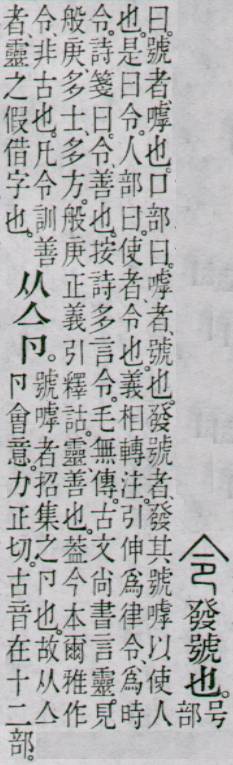 令 發號也。号
部
曰。號者、嘑也。口部曰。嘑者、號也。發號者、發其號嘑以使人
也。是曰令。人部曰。使者、令也。義相轉注。引伸爲律令、爲時
令。詩箋曰。令、善也。按詩多言令。毛無傳。古文尚書言靈。見
般庚、多士、多方。般庚正義引釋詁。靈、善也。葢今本爾雅作
令。非古也。凡令訓善
者、靈之假借字也。
从亼卪。
號嘑者招集之卪也。故从亼
卪會意。力正切。古音在十二部。